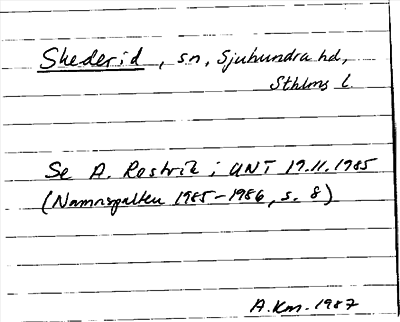 Skederid, sn, Sjuhundra hd,
Sthlms l.
Se A. Rostvik i UNT 19.11.1985
(Namnspalten 1985-1986, s. 8)
A.Km. 1987